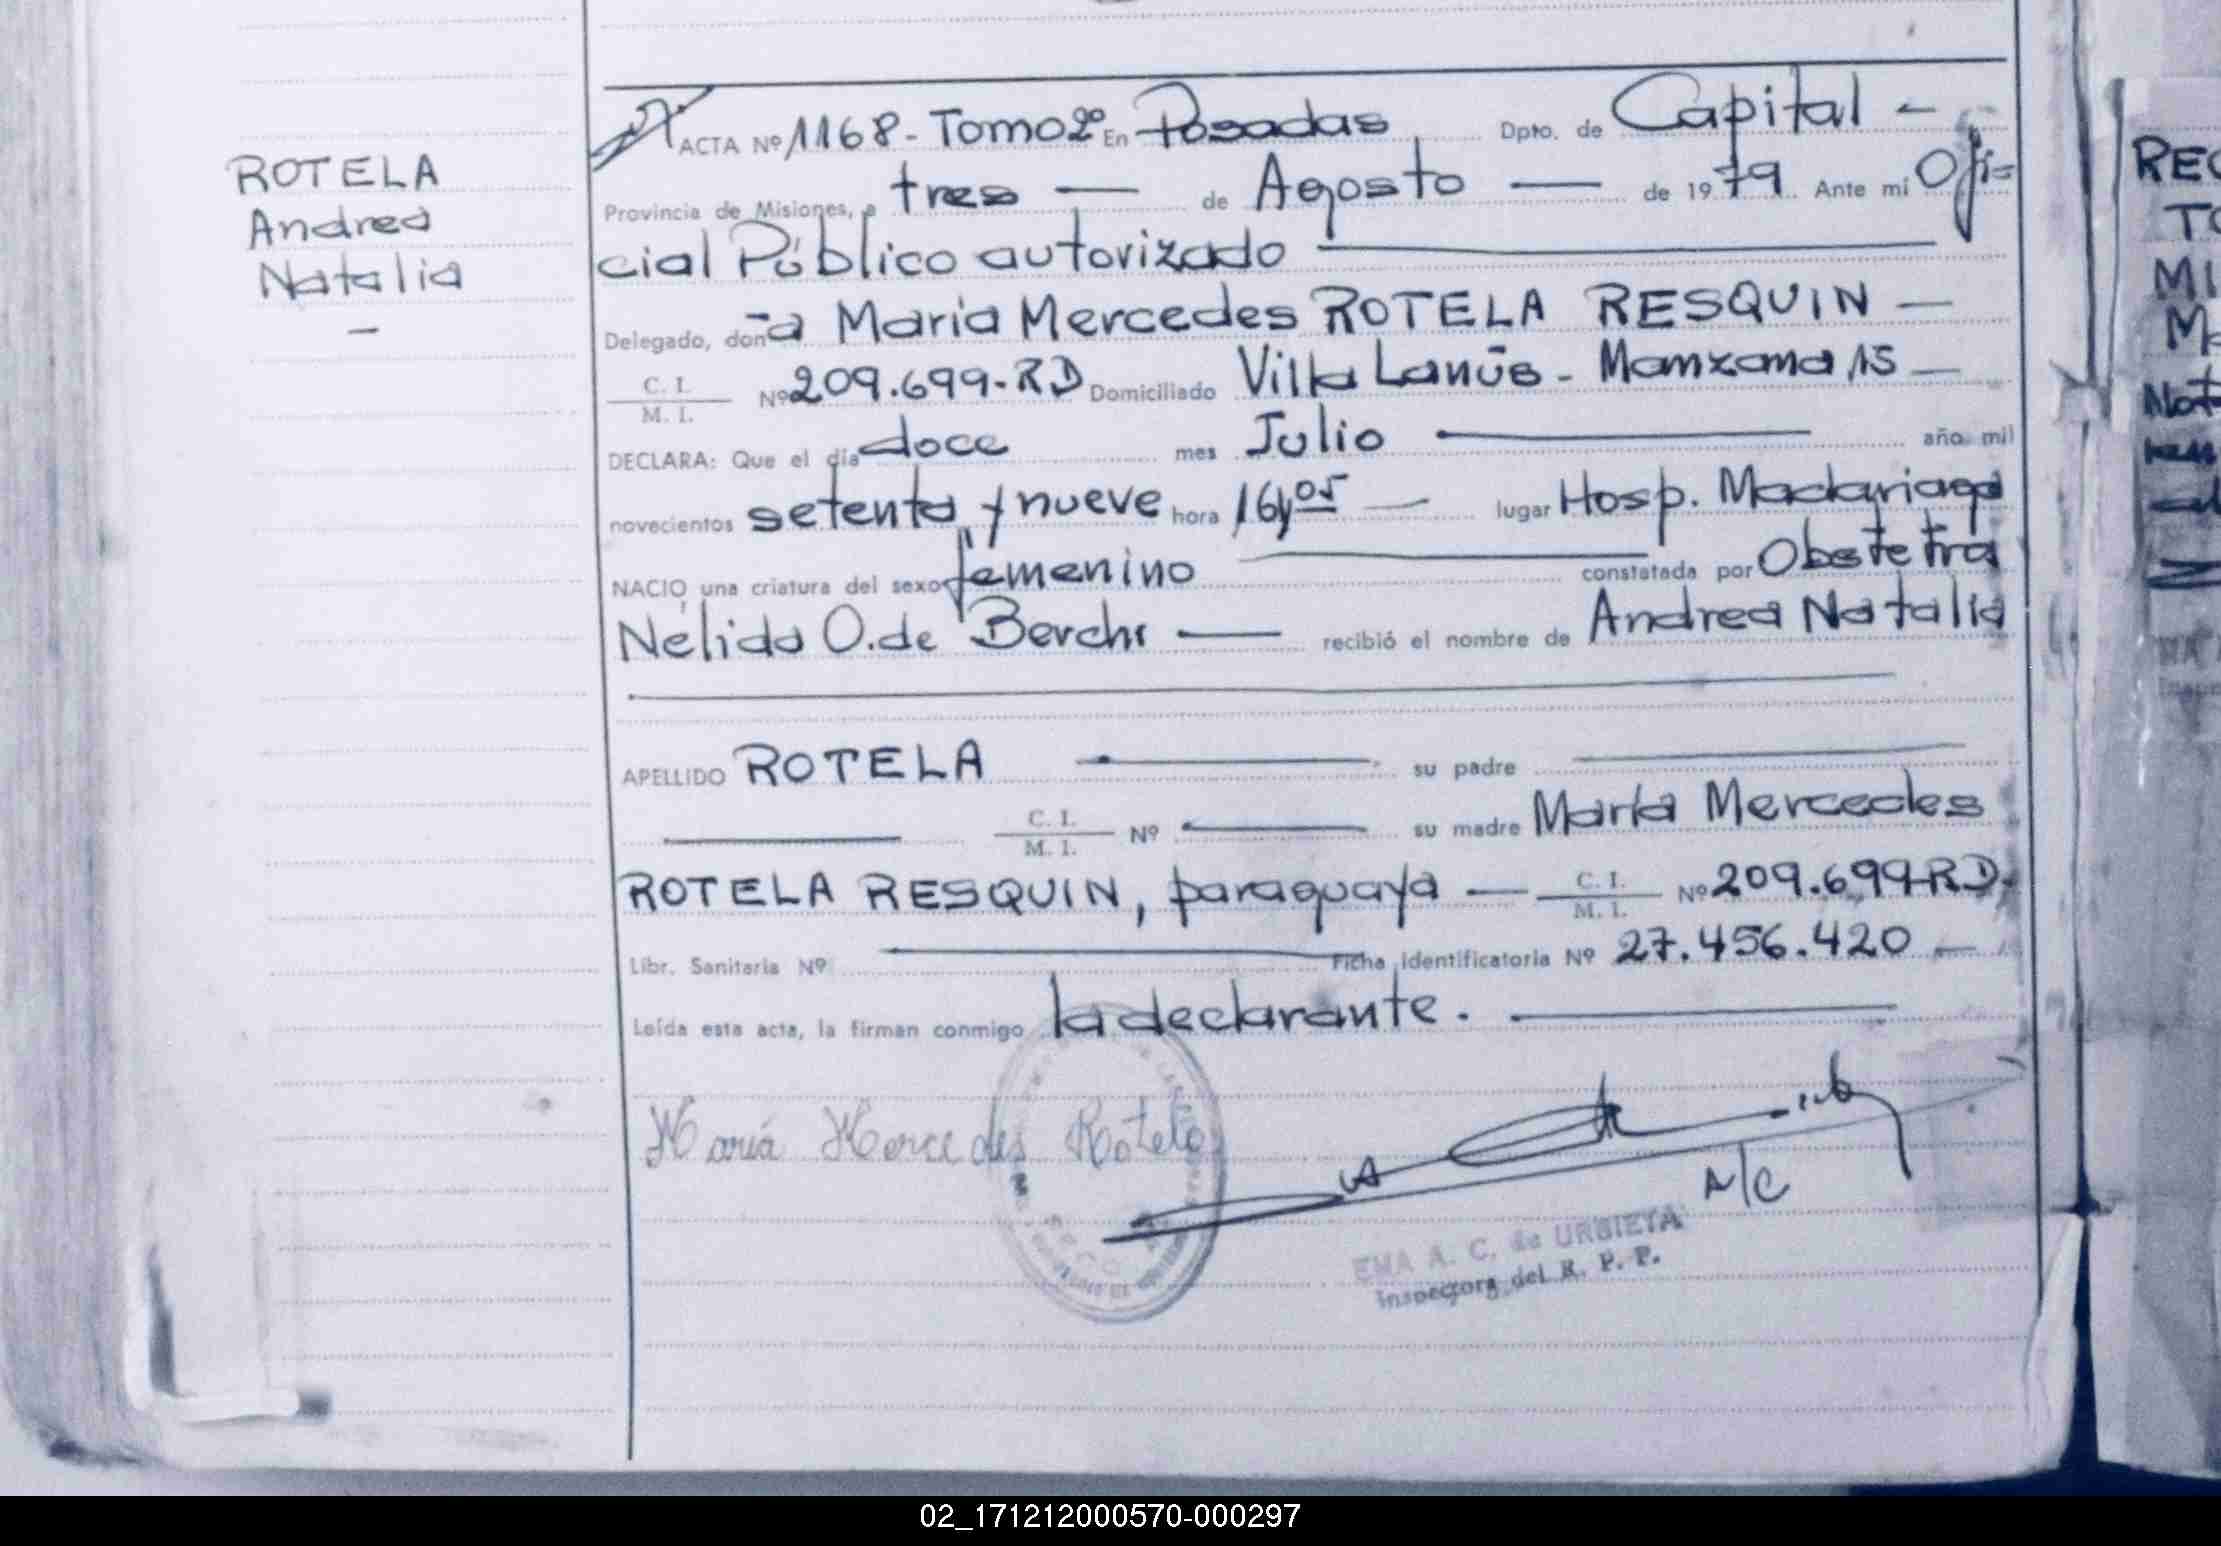 ROTELA
Andrea
Natalia
ACTA Nº 1168 - Tomo 2º En Posadas Dpto. de Capital -
Provincia de Misiones, a tres — de Agosto — de 1979 Ante mí Ofi=
cial Público autorizado
Delegado, doña María Mercedes ROTELA RESQUIN —
C. I.
M. I. Nº 209.699-RD Domiciliado Villa Lanús - Manzana 15 —
DECLARA: Que el día doce mes Julio año mil
novecientos setenta y nueve hora 16y05 — lugar Hosp. Madariaga
NACIO una criatura del sexo femenino constatada por Obstetra
Nélida O. de Berchi — recibió el nombre de Andrea Natalia
APELLIDO ROTELA su padre
C. I.
M. I. Nº su madre María Mercedes
ROTELA RESQUIN, paraguaya — C. I.
M. I. Nº 209.699-RD.
Libr. Sanitaria Nº Ficha Identificatoria Nº 27.456.420 —
Leída esta acta, la firman conmigo la declarante.
María Mercedes Rotela
A/C
EMA A. C. de URBIETA
Inspectora del R. P. P.
REC
TO
MI
02_171212000570-000297